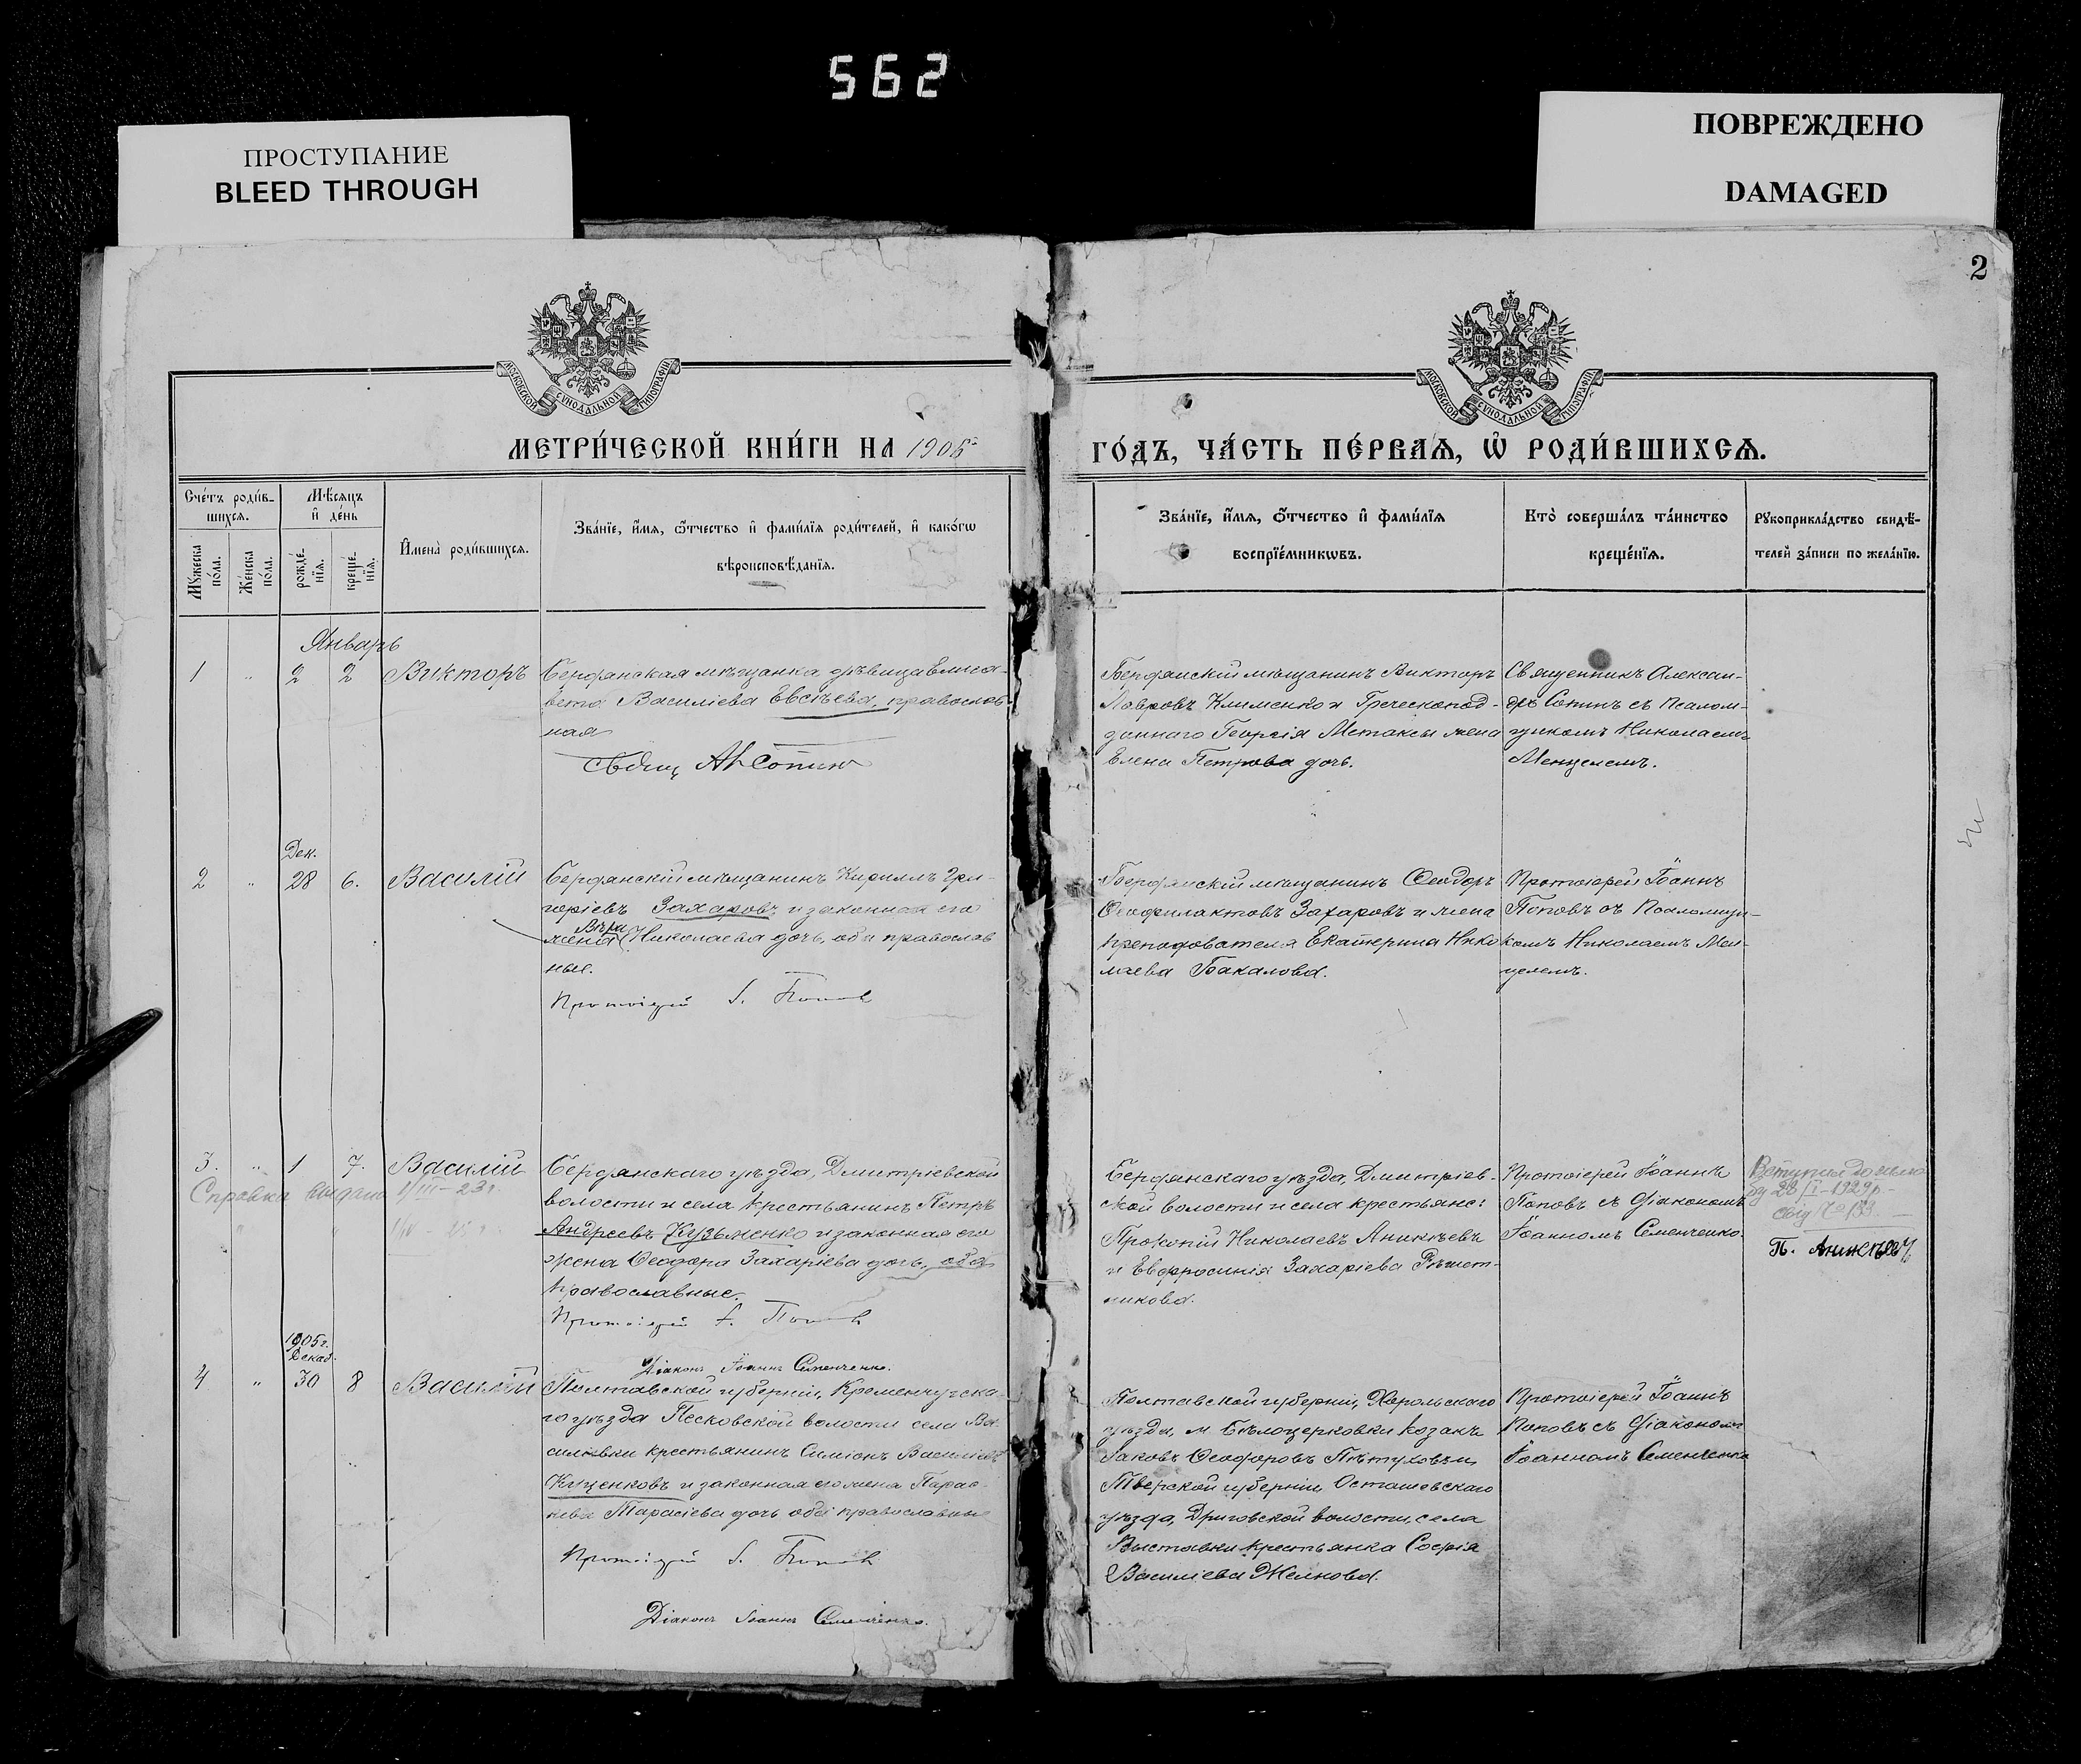 562
ПРОСТУПАНИЕ
BLEED THROUGH
ПОВРЕЖДЕНО
DAMAGED
2
МОСКОВСКОЙ СѴНОДАЛЬНОЙ ТИПОГРАФІИ
МОСКОВСКОЙ СѴНОДАЛЬНОЙ ТИПОГРАФІИ
МЕТРИ́ЧЕСКОЙ КНИ́ГИ НА 1906й
ГО́ДЪ, ЧА́СТЬ ПЕ́РВАѦ, Ѡ҆ РОДИ́ВШИХСѦ.
Сче́тъ роди́в-
шихсѧ.
Мѣ́сѧцъ
и҆ де́нь
Мꙋ́жеска
по́ла.
Же́нска
по́ла.
рожде́-
нїѧ.
креще́-
нїѧ.
И҆мена̀ роди́вшихсѧ.
Зва́нїе, и҆́мѧ, ѻ҆́тчество и҆ фами́лїѧ роди́телей, и҆ како́гѡ
вѣроисповѣ́данїѧ.
Зва́нїе, и҆́мѧ, ѻ҆́тчество и҆ фами́лїѧ
воспрїе́мникѡвъ.
Кто̀ соверша́лъ та́инство
креще́нїѧ.
Рꙋкоприкла́дство свидѣ́-
телей за́писи по жела́нїю.
Январь
1 " 2 2 Викторъ
Бердянская мѣщанка дѣвица Елиса-
вета Василіева Евсѣева, православ-
ная
Свящ А Сопинъ
Бердянскій мѣщанинъ Викторъ
Лавровъ Клименко и Греческопод-
даннаго Георгія Метаксы жена
Елена Петрова дочь.
Священникъ Алексан-
дръ Сопинъ съ Псалом-
щикомъ Николаемъ
Менцелемъ.
Дек.
2 " 28 6. Василій
Бердянскій мѣщанинъ Кириллъ Гри-
горіевъ Захаровъ и законная его
Вѣра
жена Николаева дочь, оба православ
ные.
Протоіерей І. Поповъ
Бердянскій мѣщанинъ Ѳеодоръ
Ѳеофилактовъ Захаровъ и жена
преподавателя Екатерина Нико
лаева Бакалова.
Протоіерей Іоаннъ
Поповъ съ Псаломщи-
комъ Николаемъ Мен-
целемъ.
3. " 1 7. Василій
Справка выдана 1/III-23г.
Бердянскаго уѣзда, Дмитріевской
волости и села крестьянинъ Петръ
Андреевъ Кузьменко и законная его
жена Ѳеодора Захаріева дочь, оба
православные.
Протоіерей І. Поповъ
Діаконъ Іоаннъ Семенченко.
Бердянскаго уѣзда, Дмитріев-
ской волости и села крестьяне:
Прокопій Николаевъ Аникѣевъ
и Евфросинія Захаріева Рѣшет-
никова.
Протоіерей Іоаннъ
Поповъ съ Діакономъ
Іоанномъ Семенченко.
28/I-1929р.
свід № 139
П. Аникѣевъ
1905г.
Декаб.
4 " 30 8 Василій
Полтавской губерніи, Кременчугска-
го уѣзда Песковской волости села Ва-
сильевки крестьянинъ Симеонъ Василіевъ
Куценковъ и законная его жена Парас-
кева Тарасіева дочь оба православные
Протоіерей І. Поповъ
Діаконъ Іоаннъ Семенченко.
Полтавской губерніи, Хорольскаго
уѣзда, м. Бѣлоцерковки козакъ
Іаковъ Ѳеодоровъ Пѣтуховъ и
Тверской губерніи Осташевскаго
уѣзда, Дриговской волости, села
Выставки крестьянка Софія
Василіева Желнова.
Протоіерей Іоаннъ
Поповъ съ Діакономъ
Іоанномъ Семенченко